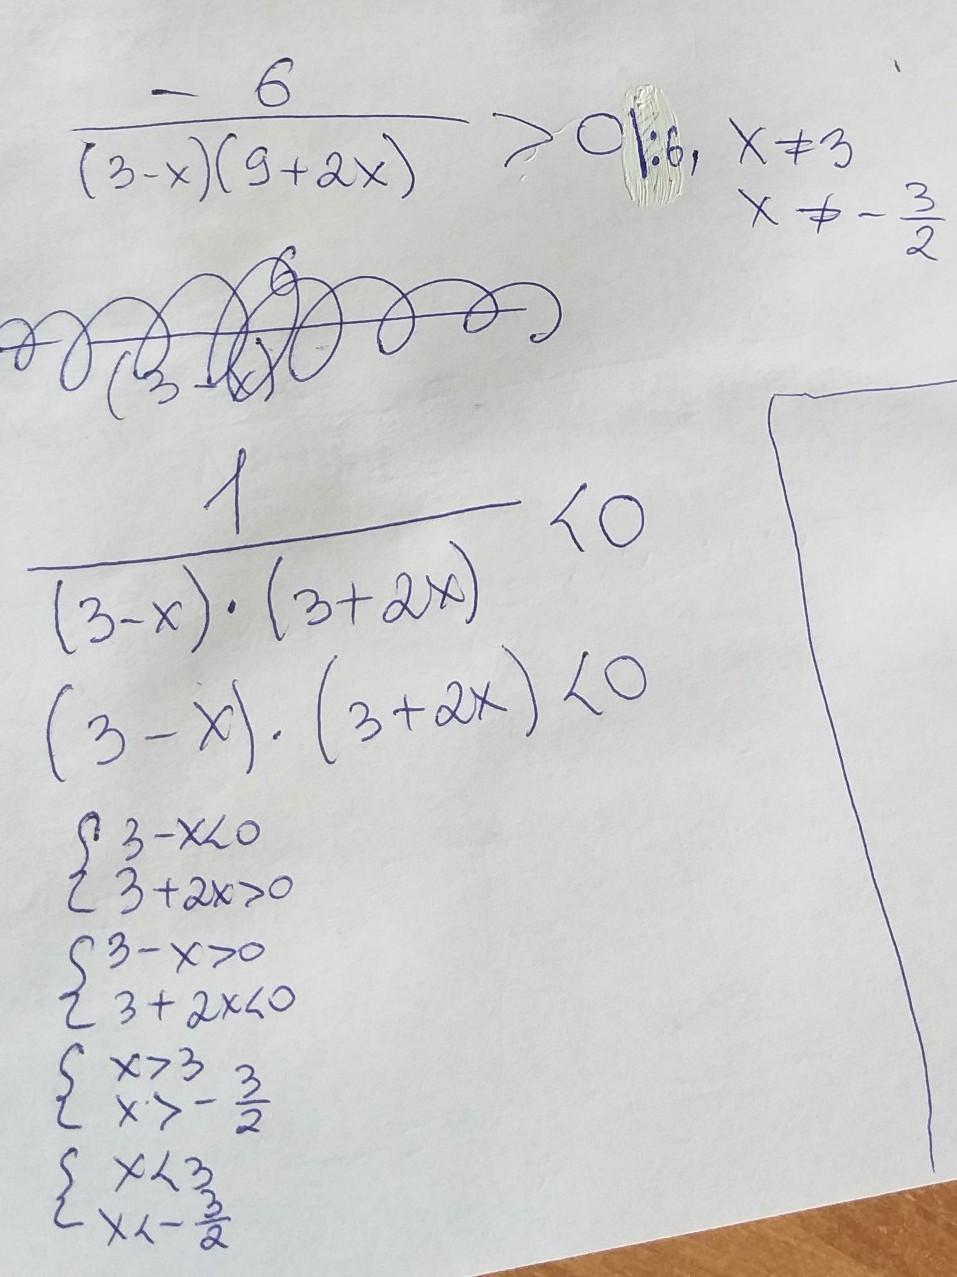 - 6
(3-x)(9+2x) > 0 |:6, x≠3
x ≠ - 3/2
6
(3-x)
1
(3-x)·(3+2x) <0
(3-x)·(3+2x)<0
{ 3-x<0
3+2x>0
{ 3-x>0
3+2x<0
{ x>3
x>- 3/2
{ x<3
x<- 3/2